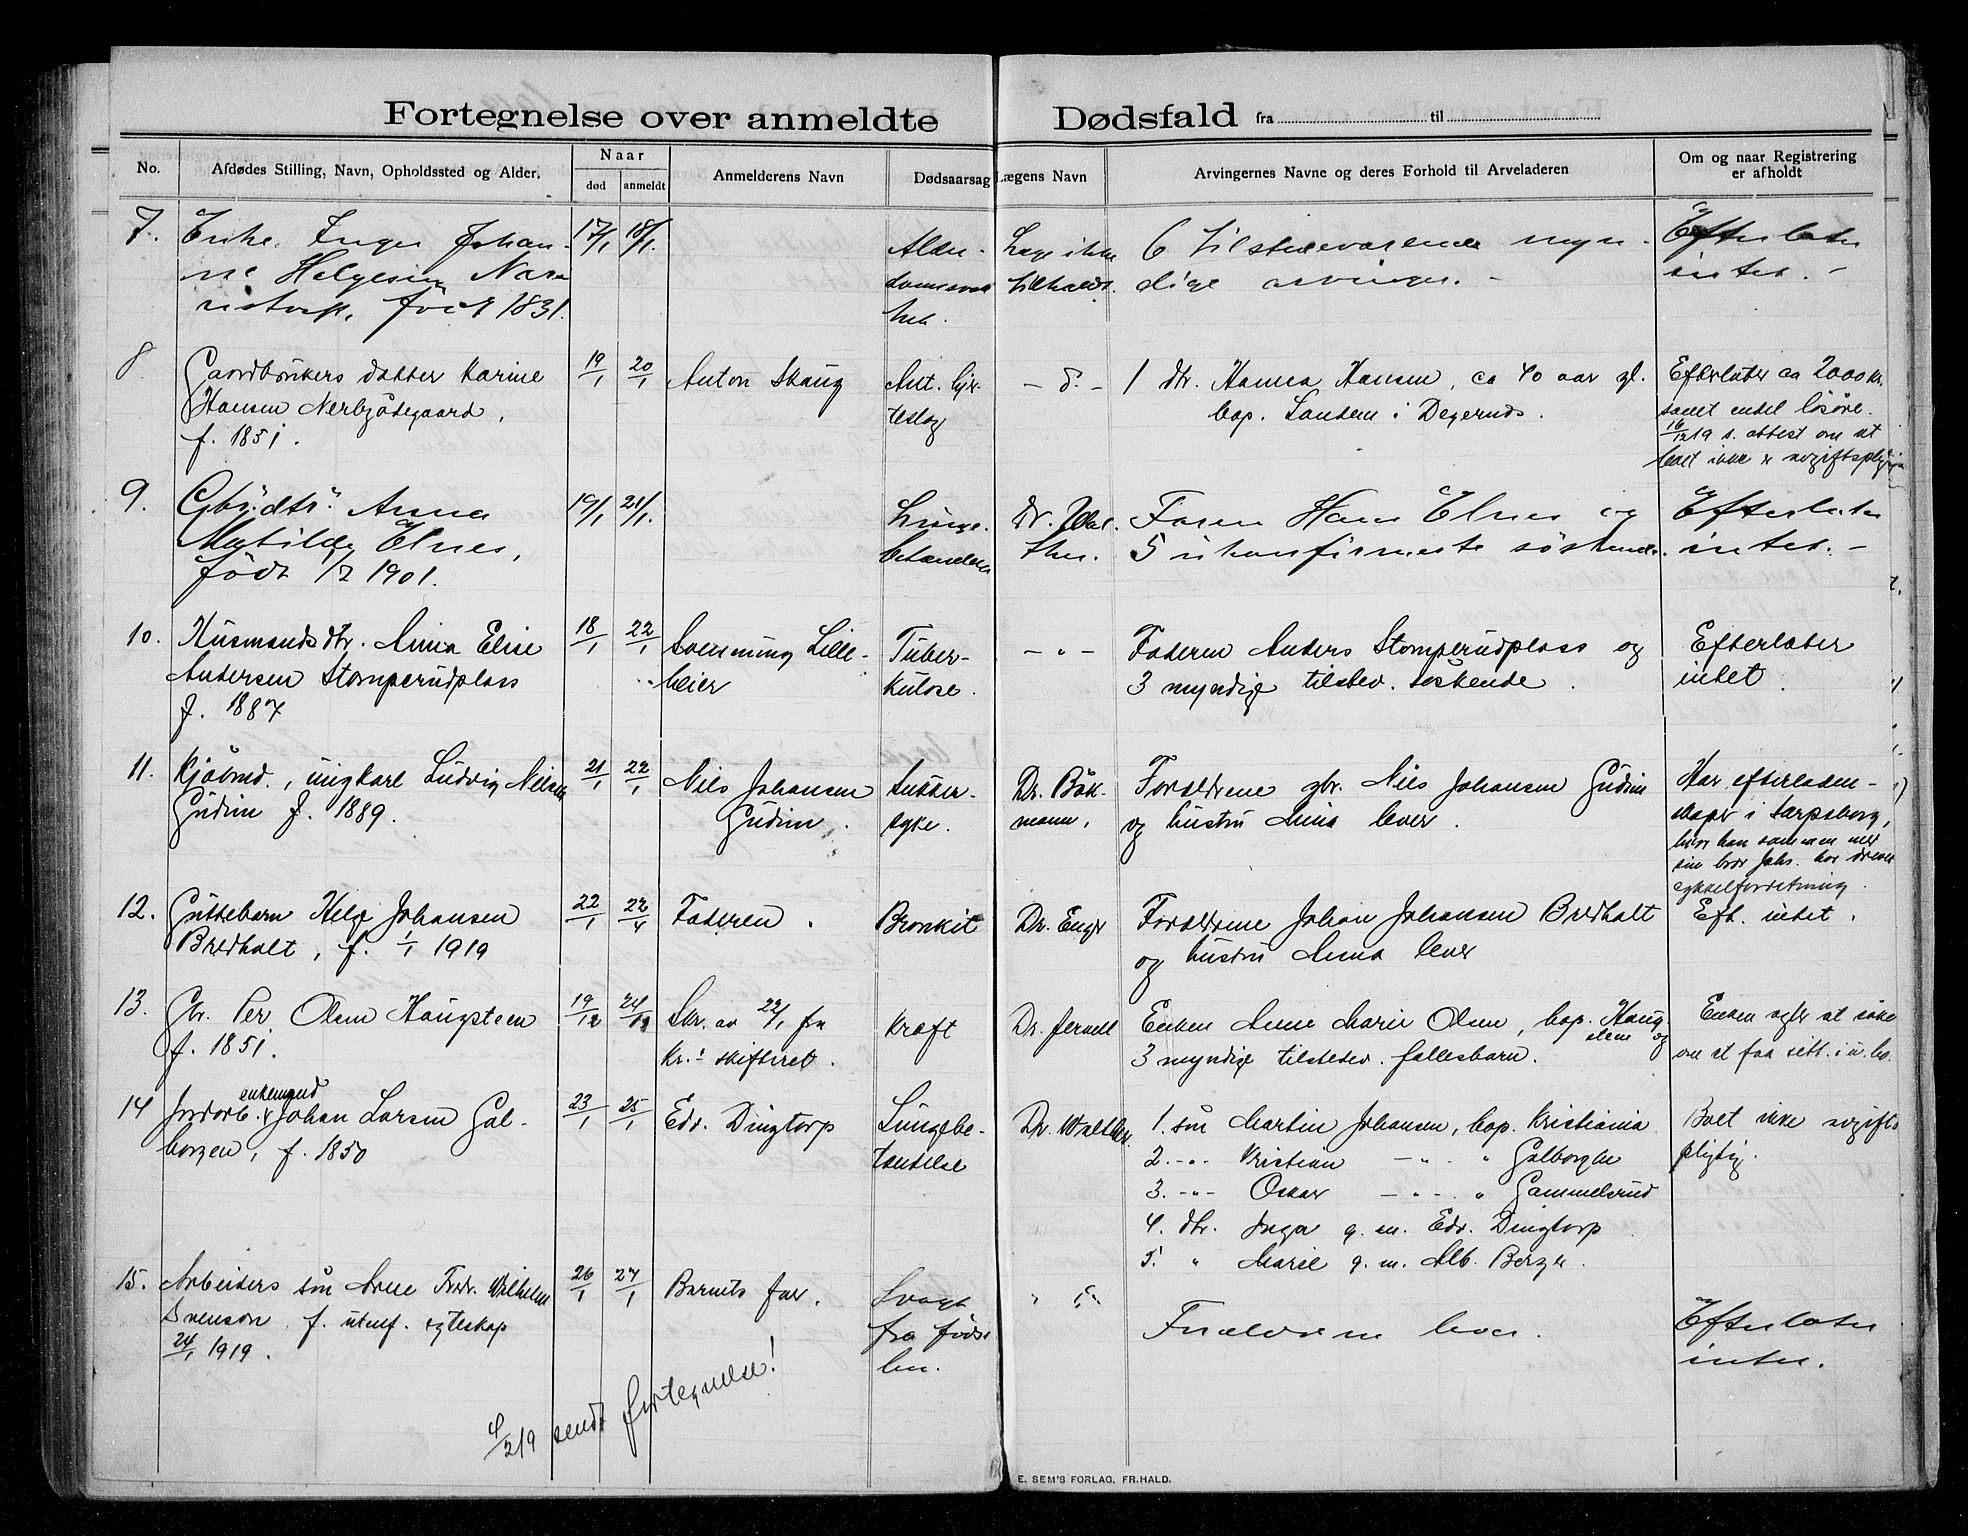 Fortegnelse over anmeldte Dødsfald fra til
No. Afdødes Stilling, Navn, Opholdssted og Alder. Naar død anmeldt Anmelderens Navn Dødsaarsag Lægens Navn Arvingernes Navne og deres Forhold til Arveladeren Om og naar Registrering er afholdt
7. Enke Inger Johan- 17/1 18/1. Alder- Læge ikke 6 tilstedeværende myn- Efterlater
ne Helgesen tilkaldt. dige arvinger. - intet. -
født 1831.
8 Gaardbrukers datter Karine 19/1 20/1 Anton Skaug Ant. hjer- - d. - 1 dtr. Hanna Hansen, ca 40 aar gl. Efterlater ca 2000 kr.
Hansen Nerbyødegaard, teslag bop. Sanden i Degernes. samt endel løsøre.
f. 1851. 16/12 19 s. attest om at
boet ikke er avgiftspligtig
9. Gbr.dtr. Anna 19/1 21/1. Lunge- Dr. Wal- Faren Hans Elnes og Efterlater
Matilde Elnes, betændelse ther. 5 ukonfirmerte søskende. intet. -
født 1/7 1901.
10. Husmandsdtr. Anna Elise 18/1 22/1 Svenning Lille- Tuber- - " - Faderen Anders Stomperudplass og Efterlater
Andersen Stomperudplass heier kulose. 3 myndige tilstev. søskende. intet.
f. 1887
11. Kjøbmd., ungkarl Ludvig Nilsen 21/1 22/1 Nils Johansen Sukker- Dr. Bøk- Forældrene gbr. Nils Johansen Gudim Har efterladen-
Gudim f. 1889. Gudim. syke. mann, og hustru Anna lever. skaper i Sarpsborg,
hvor han sammen med
sin bror Johs. har drevet
sykkelforretning.
12. Guttebarn Helge Johansen 22/1 22/1 Faderen. Bronkit Dr. Enge Forældrene Johan Johansen Bredholt Eft. intet.
Bredholt, f. 1/1 1919 og hustru Anna lever
13. Gbr. Per Olsen Haugsteen 19/12 24/12 Skr. av 22/1 fra Kræft Dr. Jervell Enken Anne Marie Olsen, bop. Haug- Enken agter at søke
f. 1851. Kr.a skifteret. 3 myndige tilstedev. fællesbarn. steen og om at faa sitt. i u. bo.
14 enkemand
Jordarb. Johan Larsen Gal- 23/1 25/1 Edv. Dingtorp Lungebe- Dr. Walther. 1. søn Martin Johansen, bop. Kristiania Boet ikke avgifts
borgen, f. 1850 tændelse 2. -"- Kristian - " - " Galborghe pligtig.
3. -"- Oskar - " - " Gammelsrud
4. dtr. Inga g. m. Edv. Dingtorp
5. " Marie g. m. Alb. Berger.
15. Arbeiders søn Arne Fredr. Wilhelm 26/1 27/1 Barnets far. Svagt " " Forældrene lever. Efterlater
Svenson, f. utenf. egteskap fra føds- intet.
24/1 1919. len.
4/2 19 sendt fortegnelse!
E. SEM'S FORLAG, FR.HALD.